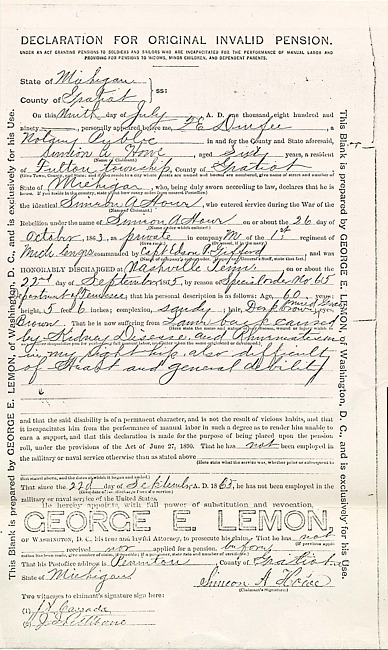 DECLARATION FOR ORIGINAL INVALID PENSION.
UNDER AN ACT GRANTING PENSIONS TO SOLDIERS AND SAILORS WHO ARE INCAPACITATED FOR THE PERFORMANCE OF MANUAL LABOR AND
PROVIDING FOR PENSIONS TO WIDOWS, MINOR CHILDREN, AND DEPENDENT PARENTS.
State of Michigan
County of Gratiot ss:
On this Ninth day of July A. D. one thousand eight hundred and
ninety personally appeared before me, a
Notary Public in and for the County and State aforesaid,
Simeon A. aged Sixty years, a resident
of Fulton township, County of Gratiot
State of Michigan, who, being duly sworn according to law, declares that he is
the identical Simeon A, who entered service during the War of the
Rebellion under the name of Simeon A on or about the 26 day of
October, 1863, as private in company M of the 1st regiment of
Mich Engrs commanded by Capt
HONORABLY DISCHARGED at Nashville Tenn on or about the
22nd day of September 1865, by reason of Special order No 65
Department of Tennessee that his personal description is as follows: Age, 60 years;
height, 5 feet 6 inches; complexion, sandy; hair, Dark; eyes,
Brown. That he is now suffering from Lame back caused
by Kidney Disease and Rheumatism
in my right hip also difficulty
of Heart and general debility
and that the said disability is of a permanent character, and is not the result of vicious habits, and that
it incapacitates him from the performance of manual labor in such a degree as to render him unable to
earn a support, and that this declaration is made for the purpose of being placed upon the pension
roll, under the provisions of the Act of June 27, 1890. That he has not been employed in
the military or naval service otherwise than as stated above
That since the 22d day of September A. D. 1865, he has not been employed in the
military or naval service of the United States.
He hereby appoints, with full power of substitution and revocation,
GEORGE E. LEMON,
of WASHINGTON, D. C., his true and lawful Attorney, to prosecute his claim. That he has not
received nor applied for a pension before
That his Postoffice address is Perrinton, County of Gratiot
State of Michigan
Simeon A
(Claimant's signature.)
Two witnesses to claimant's signature sign here:
(1)
(2)
This Blank is prepared by GEORGE E. LEMON, of Washington, D. C., and is exclusively for his Use.
This Blank is prepared by GEORGE E. LEMON, of Washington, D. C., and is exclusively for his Use.